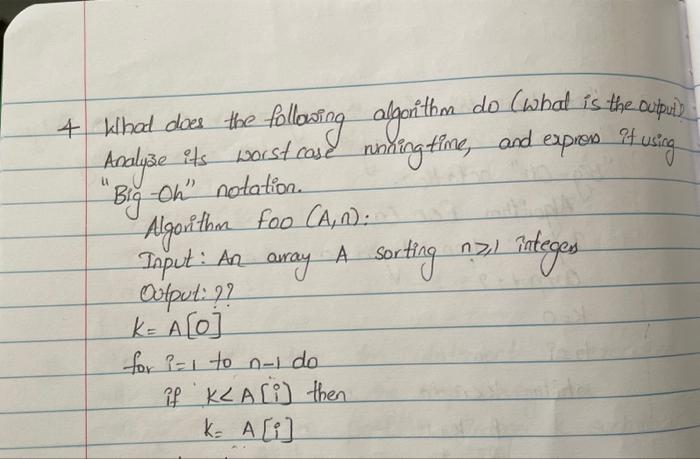 4 What does the following algorithm do (what is the output)
Analyze its worst case running time, and express it using
"Big-Oh" notation.
Algorithm foo (A,n):
Input: An array A sorting n≥1 integers
Output: ??
k= A[0]
for i=1 to n-1 do
if k<A[i] then
k= A[i]